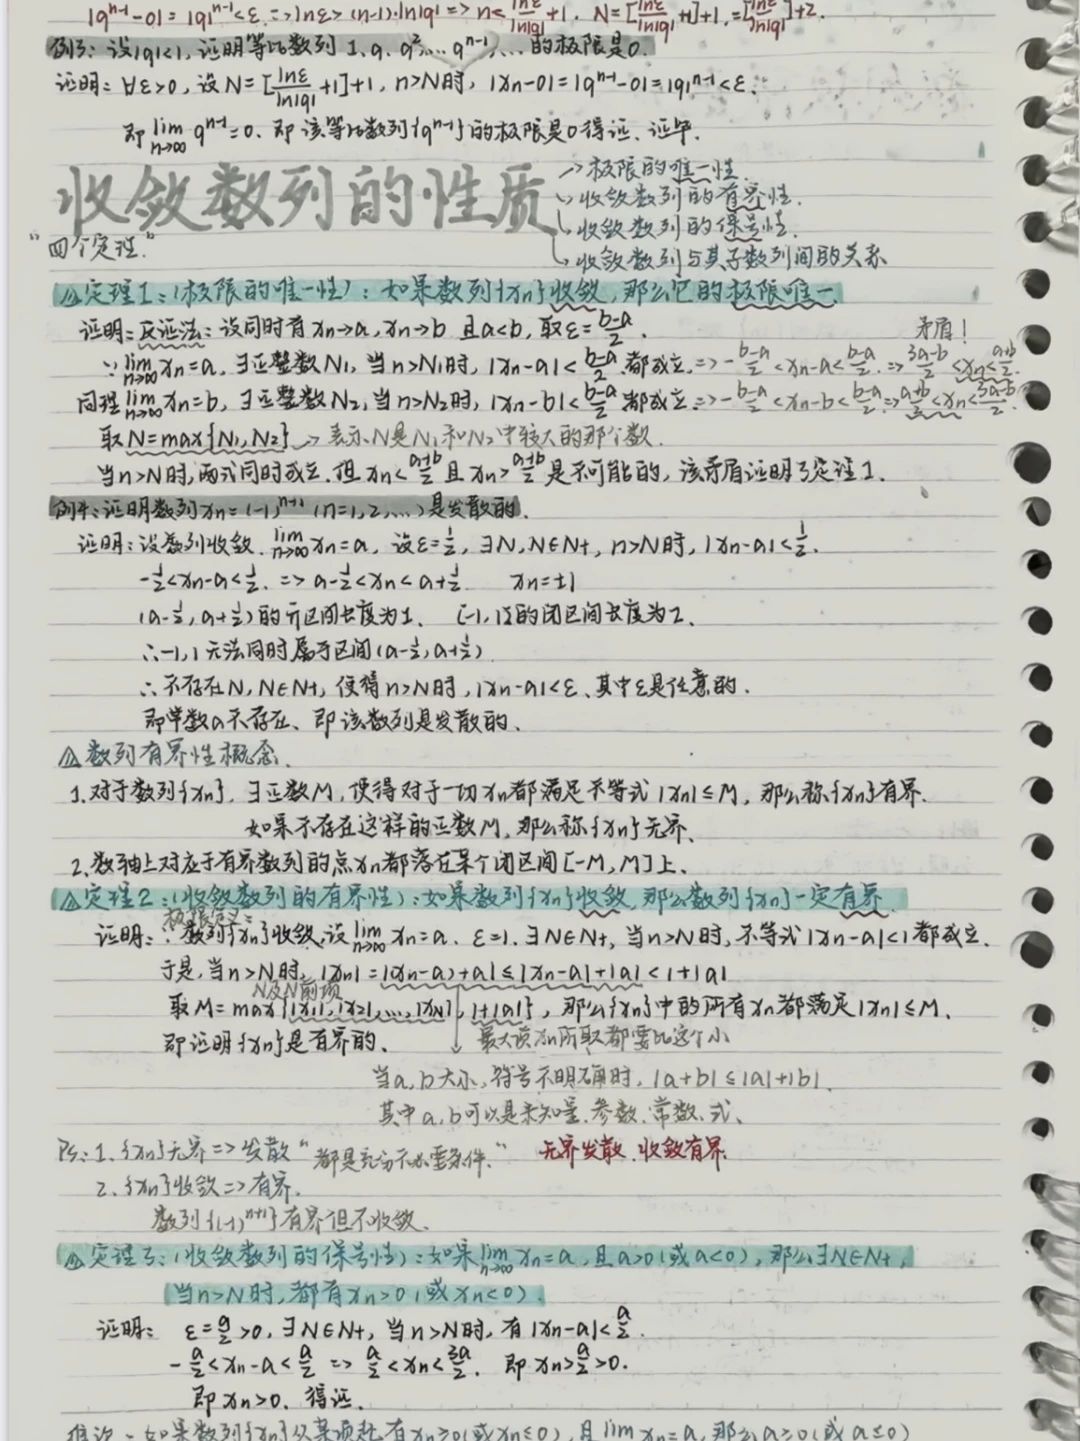 |q^{n-1}-0| = |q|^{n-1} < ε => lnε > (n-1)·ln|q| => n < lnε/ln|q| + 1. N = [lnε/ln|q| + 1] + 1, = [lnε/ln|q|] + 2.
例3: 设|q|<1, 证明等比数列 1, q, q², … q^{n-1}, … 的极限是0.
证明: ∀ε>0, 设 N = [lnε/ln|q| + 1] + 1, n>N时, |xn-0| = |q^{n-1}-0| = |q|^{n-1} < ε.
即 lim n→∞ q^{n-1} = 0. 即该等比数列{q^{n-1}}的极限是0得证. 证毕.
收敛数列的性质
→ 极限的唯一性.
↘ 收敛数列的有界性.
↘ 收敛数列的保号性.
↘ 收敛数列与其子数列间的关系
“四个定理”
△定理1: (极限的唯一性): 如果数列{xn}收敛, 那么它的极限唯一
证明: 反证法: 设同时有 xn→a, xn→b 且a<b, 取ε = (b-a)/2. 矛盾!
∵ lim n→∞ xn = a, ∃正整数N1, 当n>N1时, |xn-a| < (b-a)/2 都成立. => -(b-a)/2 < xn-a < (b-a)/2. => (3a-b)/2 < xn < (a+b)/2.
同理 lim n→∞ xn = b, ∃正整数N2, 当n>N2时, |xn-b| < (b-a)/2 都成立 => -(b-a)/2 < xn-b < (b-a)/2. => (a+b)/2 < xn < (3a-b)/2.
取N = max{N1, N2} → 表示N是N1和N2中较大的那个数.
当n>N时, 两式同时成立. 但 xn < (a+b)/2 且 xn > (a+b)/2 是不可能的, 该矛盾证明了定理1.
例4: 证明数列xn = (-1)^{n+1} (n=1,2,…) 是发散的.
证明: 设数列收敛. lim n→∞ xn = a, 设ε = 1/2, ∃N, N∈N+, n>N时, |xn-a| < 1/2.
-1/2 < xn-a < 1/2. => a-1/2 < xn < a+1/2 xn = ±1
(a-1/2, a+1/2)的开区间长度为1. [-1, 1]的闭区间长度为2.
∴ -1, 1 无法同时属于区间(a-1/2, a+1/2)
∴ 不存在N, N∈N+, 使得n>N时, |xn-a| < ε, 其中ε是任意的.
即常数a不存在. 即该数列是发散的.
△ 数列有界性概念.
1. 对于数列{xn}. ∃正数M, 使得对于一切xn都满足不等式 |xn| ≤ M, 那么称{xn}有界.
如果不存在这样的正数M, 那么称{xn}无界.
2. 数轴上对应于有界数列的点xn都落在某个闭区间[-M, M]上.
△定理2: (收敛数列的有界性): 如果数列{xn}收敛, 那么数列{xn}一定有界.
极限定义:
证明: ∵ 数列{xn}收敛, 设 lim n→∞ xn = a. ε=1. ∃N∈N+, 当n>N时, 不等式 |xn-a| < 1 都成立.
于是, 当n>N时, |xn| = |(xn-a)+a| ≤ |xn-a|+|a| < 1+|a|
N及N前项
取 M = max{|x1|, |x2|, …, |xN|, 1+|a|}, 那么{xn}中的所有xn都满足|xn| ≤ M.
即证明{xn}是有界的. 最大项xn所取都要比这个小
当a, b大小, 符号不明确时, |a+b| ≤ |a|+|b|.
其中a, b可以是未知量. 参数. 常数. 式.
Ps: 1. {xn}无界 => 发散 “都是充分不必要条件.” 无界发散. 收敛有界
2. {xn}收敛 => 有界.
数列{(-1)^{n+1}}有界但不收敛.
△定理3: (收敛数列的保号性): 如果 lim n→∞ xn = a, 且a>0(或a<0), 那么∃N∈N+,
当n>N时, 都有xn>0(或xn<0).
证明: ε = a/2 > 0, ∃N∈N+, 当n>N时, 有|xn-a| < a/2.
-a/2 < xn-a < a/2 => a/2 < xn < 3a/2. 即xn > a/2 > 0.
即xn>0. 得证.
推论: 如果数列{xn}从某项起有xn≥0(或xn≤0), 且 lim xn = a, 那么a≥0(或a≤0)